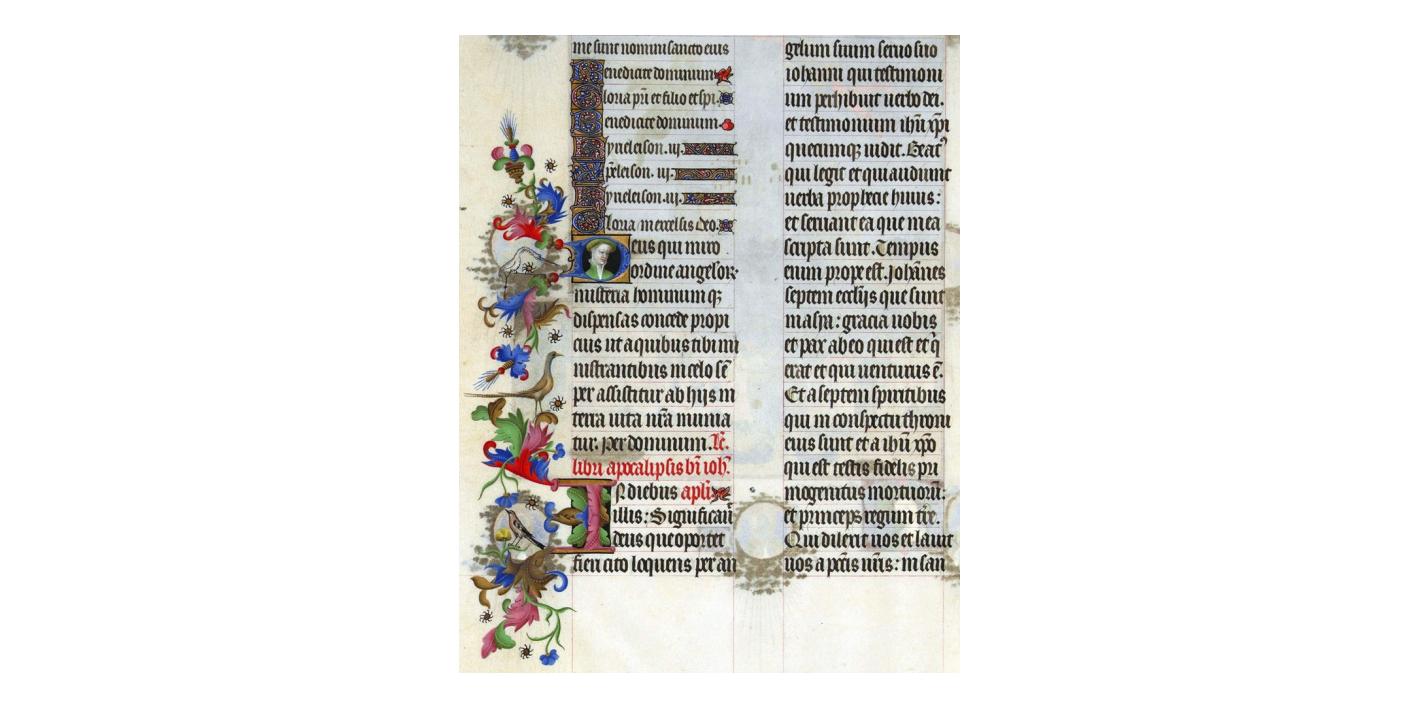 me sunt nomini sancto eius
Benedicite dominum
Gloria pri et filio et spi.
Benedicite dominum.
Kyrieleison. iij.
Xpeleison. iij.
Kyrieleison. iij.
Gloria in excelsis deo.
Deus qui miro
ordine angelor
misteria hominum q;
dispensas concede propi
cius ut a quibus tibi mi
nistrantibus in celo sē
per assistitur ab hijs in
terra uita nr̄a munia
tur. per dominum. Lc̄.
libri apocalipsis bi ioh'.
In diebus apli
illis: Significauit
deus que oportet
fieri cito loquens per an
gelum suum seruo suo
iohanni qui testimoni
um perhibuit uerbo dei.
et testimonium ihū xp̄i
quecumq; uidit. Beat'
qui legit et qui audiunt
uerba prophecie huius:
et seruant ea que in ea
scripta sunt. Tempus
enim prope est. Johānes
septem eccliis que sunt
in asya: gracia uobis
et pax ab eo qui est et q̄
erat et qui uenturus ē.
Et a septem spiritibus
qui in conspectu throni
eius sunt et a ihū xp̄o
qui est testis fidelis pri
mogenitus mortuorū:
et princeps regum tr̄e.
Qui dilexit uos et lauit
uos a pctis uris: in san